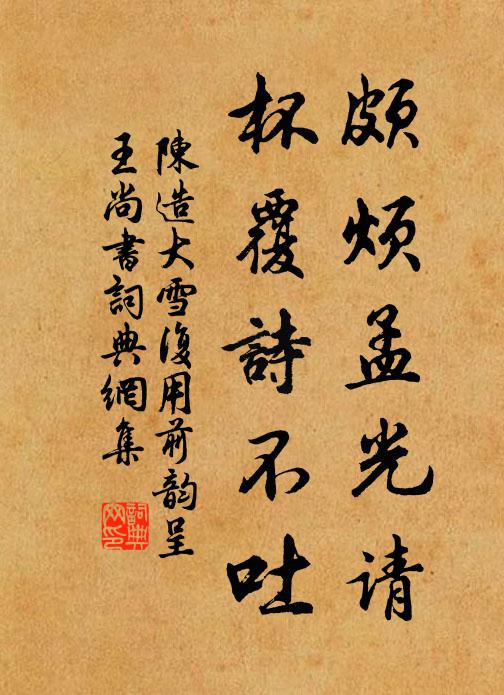 頗煩孟光请
杯覆詩不吐
陳造大雪復用前韵呈
王尚書詞典網集
詞典
网印